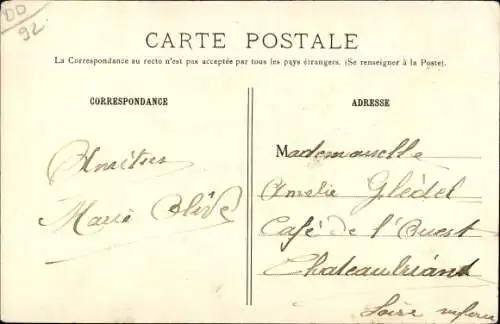 DD
92
CARTE POSTALE
La Correspondance au recto n'est pas acceptée par tous les pays étrangers. (Se renseigner à la Poste).
CORRESPONDANCE
Amitiés
Marie Olive
ADRESSE
Mademoiselle
Amelie Glédel
Café de l'Ouest
Chateaubriant
Loire inférieure